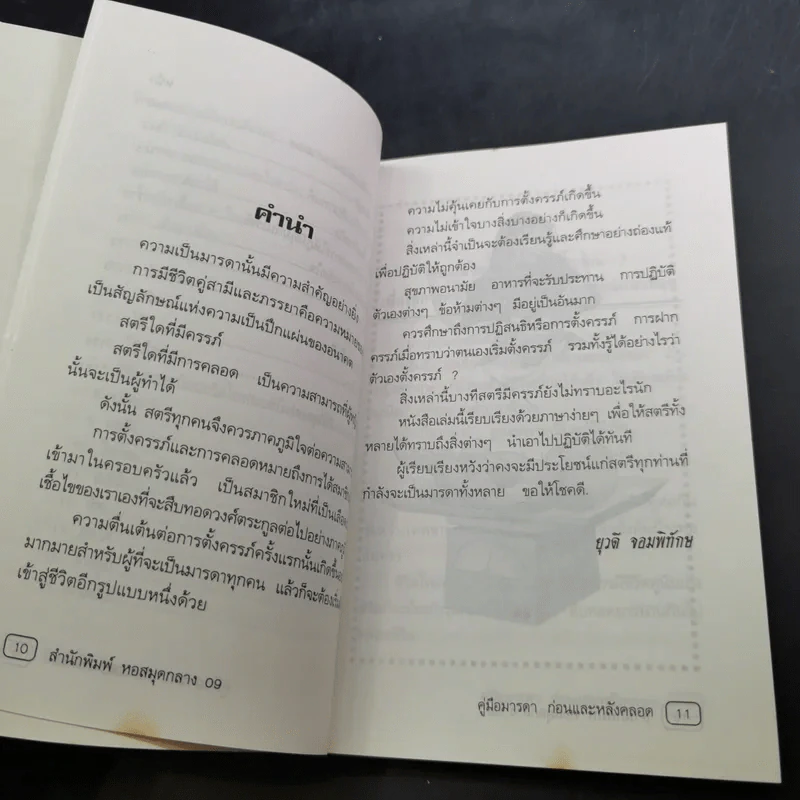 คำนำ
ความเป็นมารดานั้นมีความสำคัญอย่างยิ่ง
การมีชีวิตคู่สามีและภรรยาคือความหมาย
เป็นสัญลักษณ์แห่งความเป็นปึกแผ่นของอนาคต
สตรีใดที่มีครรภ์
สตรีใดที่มีการคลอด เป็นความสามารถที่
นั้นจะเป็นผู้ทำได้
ดังนั้น สตรีทุกคนจึงควรภาคภูมิใจต่อความ
การตั้งครรภ์และการคลอดหมายถึงการได้
เข้ามาในครอบครัวแล้ว เป็นสมาชิกใหม่ที่เป็น
เชื้อไขของเราเองที่จะสืบทอดวงศ์ตระกูลต่อไปอย่าง
ความตื่นเต้นต่อการตั้งครรภ์ครั้งแรกนั้นเกิดขึ้น
มากมายสำหรับผู้ที่จะเป็นมารดาทุกคน แล้วก็จะต้อง
เข้าสู่ชีวิตอีกรูปแบบหนึ่งด้วย
10 สำนักพิมพ์ หอสมุดกลาง 09
ความไม่คุ้นเคยกับการตั้งครรภ์เกิดขึ้น
ความไม่เข้าใจบางสิ่งบางอย่างก็เกิดขึ้น
สิ่งเหล่านี้จำเป็นจะต้องเรียนรู้และศึกษาอย่างถ่องแท้
เพื่อปฏิบัติให้ถูกต้อง
สุขภาพอนามัย อาหารที่จะรับประทาน การปฏิบัติ
ตัวเองต่างๆ ข้อห้ามต่างๆ มีอยู่เป็นอันมาก
ควรศึกษาถึงการปฏิสนธิหรือการตั้งครรภ์ การฝาก
ครรภ์เมื่อทราบว่าตนเองเริ่มตั้งครรภ์ รวมทั้งรู้ได้อย่างไรว่า
ตัวเองตั้งครรภ์ ?
สิ่งเหล่านี้บางทีสตรีมีครรภ์ยังไม่ทราบอะไรนัก
หนังสือเล่มนี้เรียบเรียงด้วยภาษาง่ายๆ เพื่อให้สตรีทั้ง
หลายได้ทราบถึงสิ่งต่างๆ นำเอาไปปฏิบัติได้ทันที
ผู้เรียบเรียงหวังว่าคงจะมีประโยชน์แก่สตรีทุกท่านที่
กำลังจะเป็นมารดาทั้งหลาย ขอให้โชคดี.
ยุวดี จอมพิทักษ์
คู่มือมารดา ก่อนและหลังคลอด 11